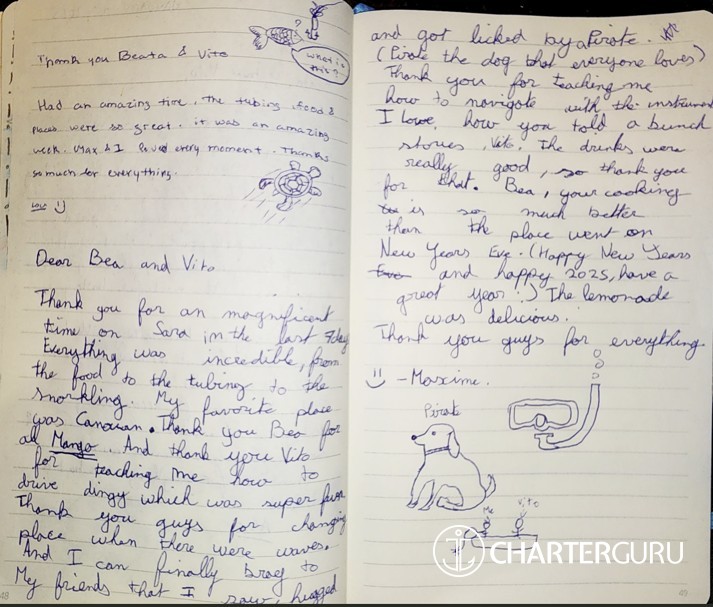 Thank you Beata & Vito
what is this?
Had an amazing time. The tubing, food &
places were so great. it was an amazing
week. Max & I loved every moment. Thanks
so much for everything.
Dear Bea and Vito
Thank you for an magnificent
time on Sara in the last 7day
Everything was incredible, from
the food to the tubing to the
snorkling. My favorite place
was Canouan. Thank you Bea for
all Mango. And thank you Vito
for teaching me how to
drive dingy which was super fun
Thank you guys for changing
place when there were waves.
And I can finally brag to
My friends that I saw, hugged
48
and got licked by a Pirate.
(Pirate the dog that everyone loves)
Thank you for teaching me
how to navigate with the instrument
I love how you told a bunch
stories, Vito. The drinks were
really good, so thank you
for that. Bea, your cooking
is so much better
than the place went on
New Years Eve. (Happy New Years
Eve and happy 2025, have a
great year :) The lemonade
was delicious.
Thank you guys for everything
- Maxime.
Pirate
Me Vito
CHARTERGURU
49